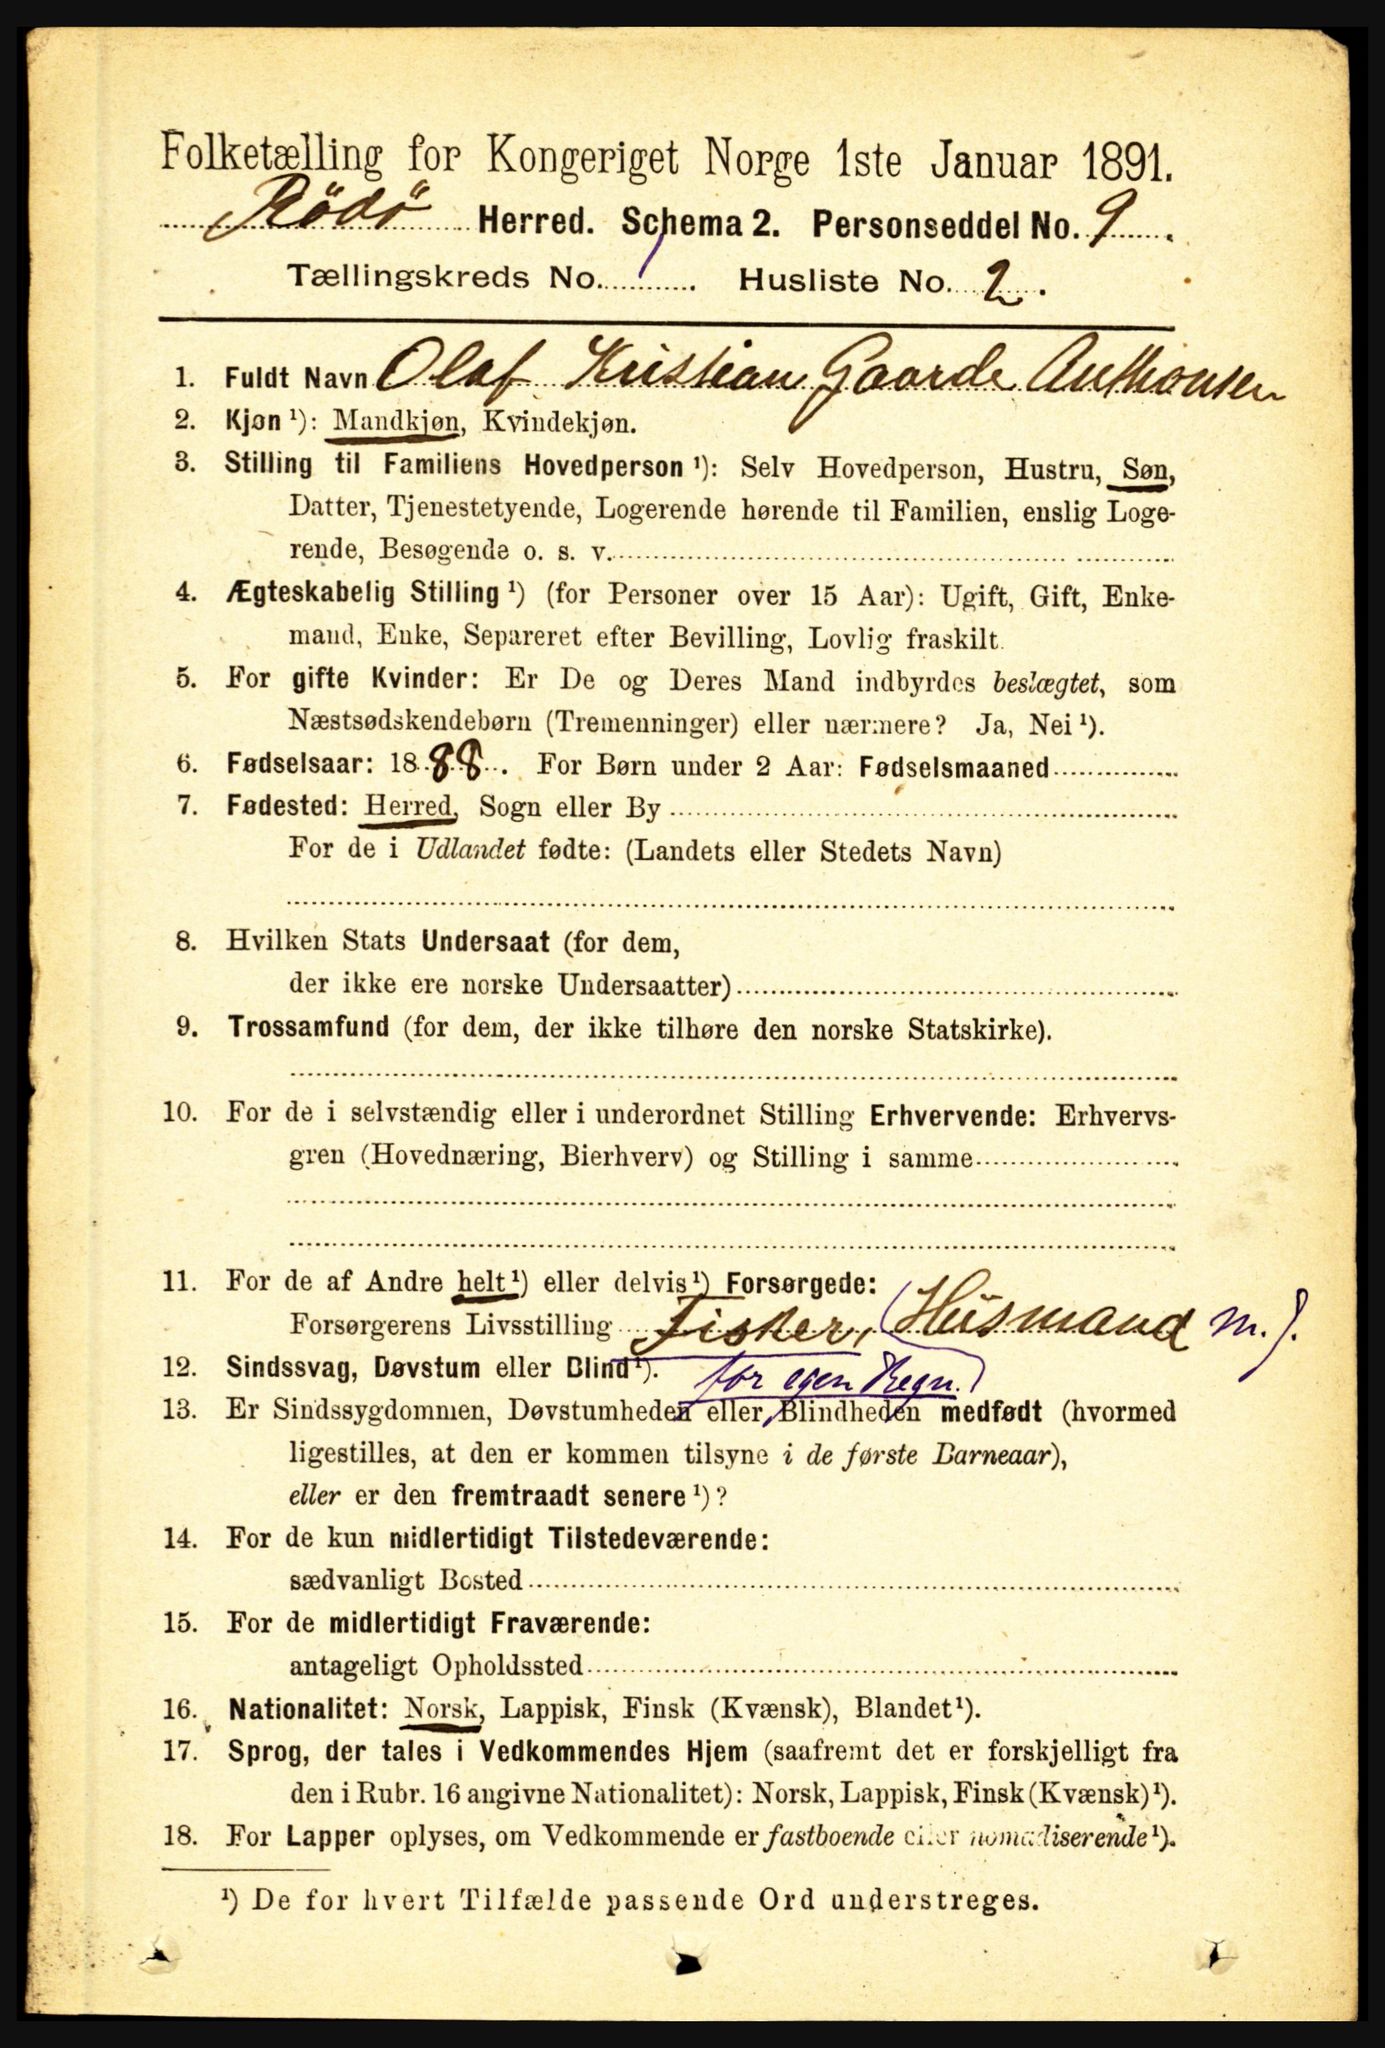 Folketælling for Kongeriget Norge 1ste Januar 1891.
Rödö Herred. Schema 2. Personseddel No. 9.
Tællingskreds No. 1. Husliste No. 2.
1. Fuldt Navn Olaf Kristian Gaarde Anthonsen
2. Kjøn ¹): Mandkjøn, Kvindekjøn.
3. Stilling til Familiens Hovedperson ¹): Selv Hovedperson, Hustru, Søn,
Datter, Tjenestetyende, Logerende hørende til Familien, enslig Loge-
rende, Besøgende o. s. v.
4. Ægteskabelig Stilling ¹) (for Personer over 15 Aar): Ugift, Gift, Enke-
mand, Enke, Separeret efter Bevilling, Lovlig fraskilt.
5. For gifte Kvinder: Er De og Deres Mand indbyrdes beslægtet, som
Næstsødskendebørn (Tremenninger) eller nærmere? Ja, Nei ¹).
6. Fødselsaar: 1888. For Børn under 2 Aar: Fødselsmaaned
7. Fødested: Herred, Sogn eller By
For de i Udlandet fødte: (Landets eller Stedets Navn)
8. Hvilken Stats Undersaat (for dem,
der ikke ere norske Undersaatter)
9. Trossamfund (for dem, der ikke tilhøre den norske Statskirke).
10. For de i selvstændig eller i underordnet Stilling Erhvervende: Erhvervs-
gren (Hovednæring, Bierhverv) og Stilling i samme
11. For de af Andre helt ¹) eller delvis ¹) Forsørgede:
Forsørgerens Livsstilling Fisker, (Husmand m. J.
12. Sindssvag, Døvstum eller Blind ¹). for egen Regn.)
13. Er Sindssygdommen, Døvstumheden eller Blindheden medfødt (hvormed
ligestilles, at den er kommen tilsyne i de første Barneaar),
eller er den fremtraadt senere ¹)?
14. For de kun midlertidigt Tilstedeværende:
sædvanligt Bosted
15. For de midlertidigt Fraværende:
antageligt Opholdssted
16. Nationalitet: Norsk, Lappisk, Finsk (Kvænsk), Blandet ¹).
17. Sprog, der tales i Vedkommendes Hjem (saafremt det er forskjelligt fra
den i Rubr. 16 angivne Nationalitet): Norsk, Lappisk, Finsk (Kvænsk) ¹).
18. For Lapper oplyses, om Vedkommende er fastboende eller nomadiserende ¹).
¹) De for hvert Tilfælde passende Ord understreges.